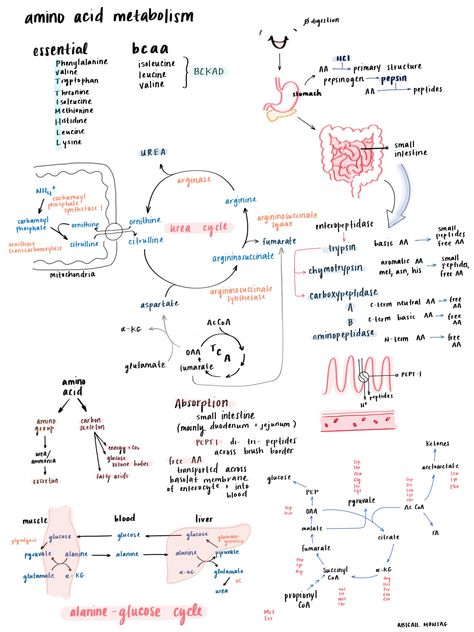 amino acid metabolism
essential
Phenylalanine
Valine
Tryptophan
Threonine
Isoleucine
Methionine
Histidine
Leucine
Lysine
bcaa
isoleucine
leucine
valine
BCKAD
Ø digestion
stomach
HCl
AA → primary structure
pepsinogen → pepsin
AA → peptides
small
intestine
enteropeptidase
trypsin
basic AA → small peptides free AA
chymotrypsin
aromatic AA
met, asn, his → small peptides, free AA
carboxypeptidase
A c-term neutral AA → free AA
B c-term basic AA → free AA
aminopeptidase
N-term AA → free AA
PEPT-1
H+
peptides
UREA
arginase
arginine
ornithine
citrulline
urea cycle
argininosuccinate
lyase
fumarate
argininosuccinate
argininosuccinate
synthetase
aspartate
α-KG
glutamate
NH4+
carbamoyl
phosphate
synthetase I
carbamoyl
phosphate
ornithine
citrulline
ornithine
transcarboxylase
mitochondria
AcCoA
OAA
TCA
fumarate
amino
acid
amino
group
urea/
ammonia
excretion
carbon
skeleton
energy + CO2
glucose
ketone bodies
fatty acids
Absorption
small intestine
(mainly duodenum + jejunum)
PEPT1 di- tri- peptides
across brush border
free AA
transported across
basolat membrane
of enterocyte + into
blood
muscle
blood
liver
glycolysis
glucose
glucose
glucose
pyruvate
alanine
alanine
alanine
pyruvate
glutamate
α-KG
α-KG
glutamate
urea
alanine-glucose cycle
glucose
PEP
OAA
malate
fumarate
Succinyl
CoA
propionyl
CoA
α-KG
citrate
pyruvate
Ac CoA
FA
acetoacetate
Ketones
Met
Ser
ABIGAIL MONTAG